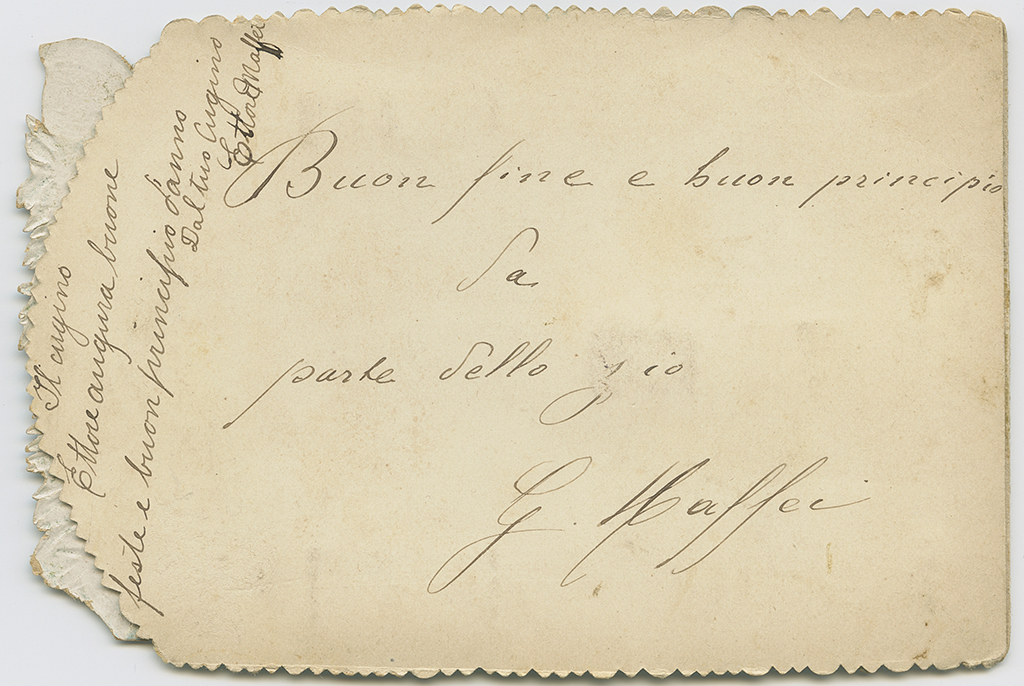 Buon fine e buon principio
da
parte dello zio
G. Maffei
Il cugino
Ettore augura buone
feste e buon principio d'anno
Dal tuo Cugino
Ettore Maffei